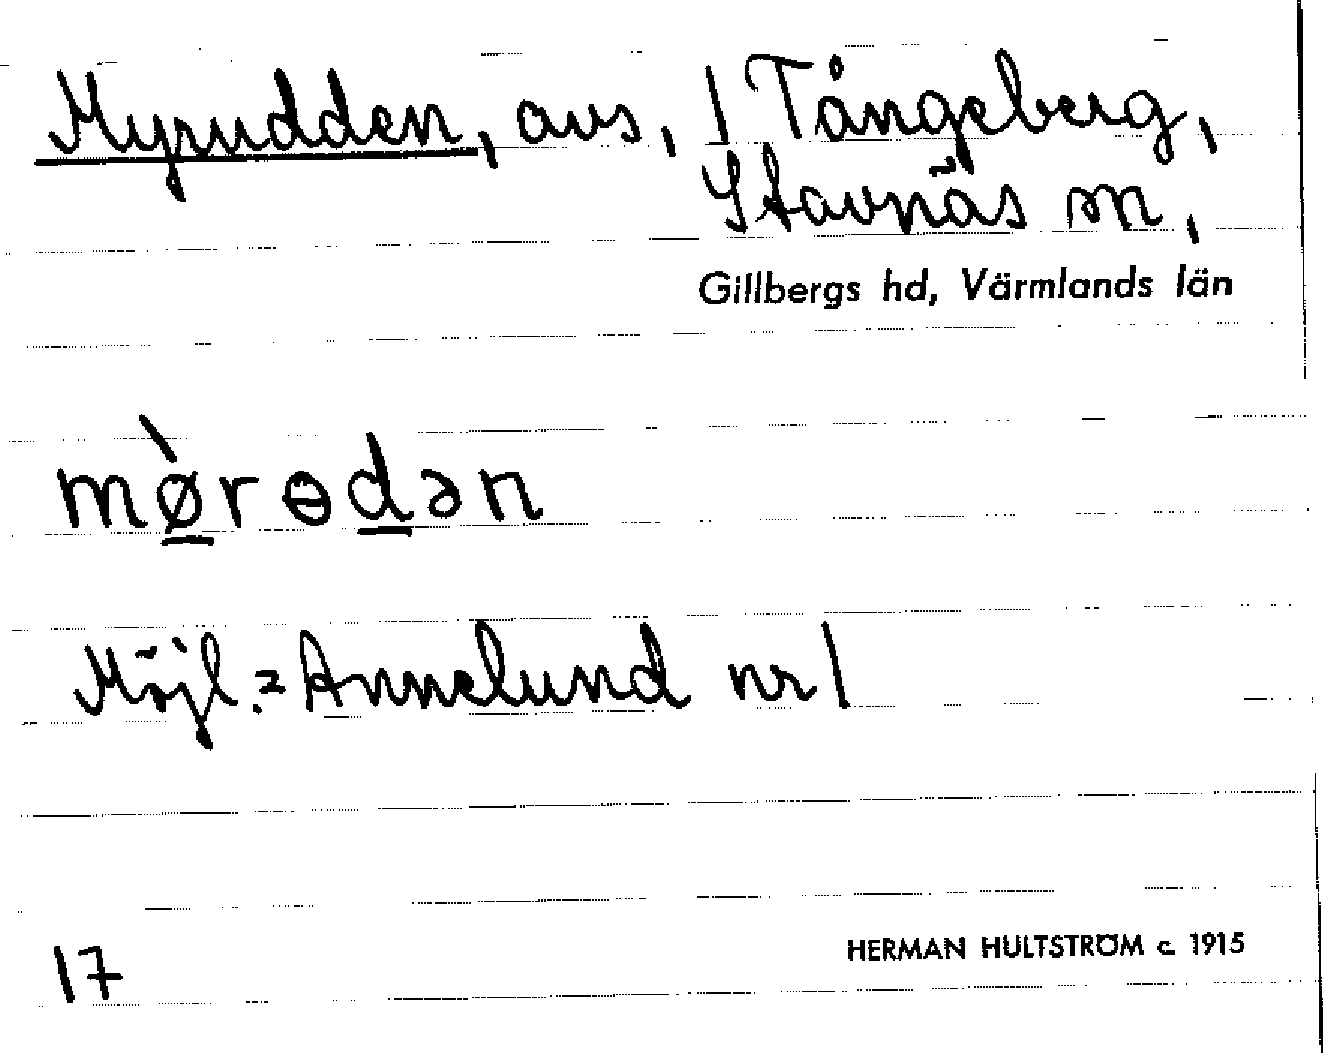 Myrudden, avs, 1 Tångeberg,
Stavnäs sn,
Gillbergs hd, Värmlands län
mø̀rɵdən
Möjl. = Annelund nr 1
17
HERMAN HULTSTRÖM c. 1915